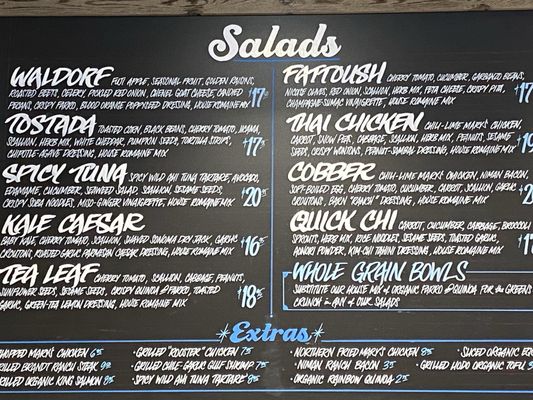 Salads
WALDORF FUJI APPLE, SEASONAL FRUIT, GOLDEN RAISINS,
ROASTED BEETS, CELERY, PICKLED RED ONION, CHEVEL GOAT CHEESE, CANDIED
PECANS, CRISPY FARRO, BLOOD ORANGE POPPYSEED DRESSING, HOUSE ROMAINE MIX $17
TOSTADA TOASTED CORN, BLACK BEANS, CHERRY TOMATO, JICAMA,
SCALLION, HERB MIX, WHITE CHEDDAR, PUMPKIN SEEDS, TORTILLA STRIPS,
CHIPOTLE-AGAVE DRESSING, HOUSE ROMAINE MIX $17
SPICY TUNA SPICY WILD AHI TUNA TARTARE, AVOCADO,
EDAMAME, CUCUMBER, SEAWEED SALAD, SCALLION, SESAME SEEDS,
CRISPY SOBA NOODLES, MISO-GINGER VINAIGRETTE, HOUSE ROMAINE MIX $20
KALE CAESAR
BABY KALE, CHERRY TOMATO, SCALLION, SHAVED SONOMA DRY JACK, GARLIC
CROUTONS, ROASTED GARLIC PARMESAN CAESAR DRESSING, HOUSE ROMAINE MIX $16
TEA LEAF CHERRY TOMATO, SCALLION, CABBAGE, PEANUTS,
SUNFLOWER SEEDS, SESAME SEEDS, CRISPY QUINOA & FARRO, TOASTED
GARLIC, GREEN-TEA LEMON DRESSING, HOUSE ROMAINE MIX $18
FATTOUSH CHERRY TOMATO, CUCUMBER, GARBANZO BEANS,
NICOISE OLIVES, RED ONION, SCALLION, HERB MIX, FETA CHEESE, CRISPY PITA,
CHAMPAGNE-SUMAC VINAIGRETTE, HOUSE ROMAINE MIX $17
THAI CHICKEN CHILI-LIME MARY'S CHICKEN,
CARROT, SNOW PEA, CABBAGE, SCALLION, HERB MIX, PEANUTS, SESAME
SEEDS, CRISPY WONTONS, PEANUT-SAMBAL DRESSING, HOUSE ROMAINE MIX
COBBER CHILI-LIME MARY'S CHICKEN, NIMAN BACON,
SOFT-BOILED EGG, CHERRY TOMATO, CUCUMBER, CARROT, SCALLION, GARLIC
CROUTONS, BARN RANCH DRESSING, HOUSE ROMAINE MIX $20
QUICK CHI CARROT, CUCUMBER, CABBAGE, BROCCOLI
SPROUTS, HERB MIX, RICE NOODLES, SESAME SEEDS, TOASTED GARLIC,
AONORI POWDER, KIM-CHI TAHINI DRESSING, HOUSE ROMAINE MIX
WHOLE GRAIN BOWLS
SUBSTITUTE OUR HOUSE MIX of ORGANIC FARRO & QUINOA FOR the GREENS
CRUNCH in ANY of OUR SALADS
Extras
WHIPPED MARY'S CHICKEN 6.5
GRILLED BRANDT RANCH STEAK 9.5
GRILLED ORGANIC KING SALMON 8.5
• GRILLED "ROOSTER" CHICKEN 7.5
• GRILLED CHILE-GARLIC GULF SHRIMP 7.5
• SPICY WILD AHI TUNA TARTARE 8.5
• NORTHERN FRIED MARY'S CHICKEN 8.5
• NIMAN RANCH BACON 3.5
• ORGANIC RAINBOW QUINOA 2.5
• SLICED ORGANIC
• GRILLED HODO ORGANIC TOFU